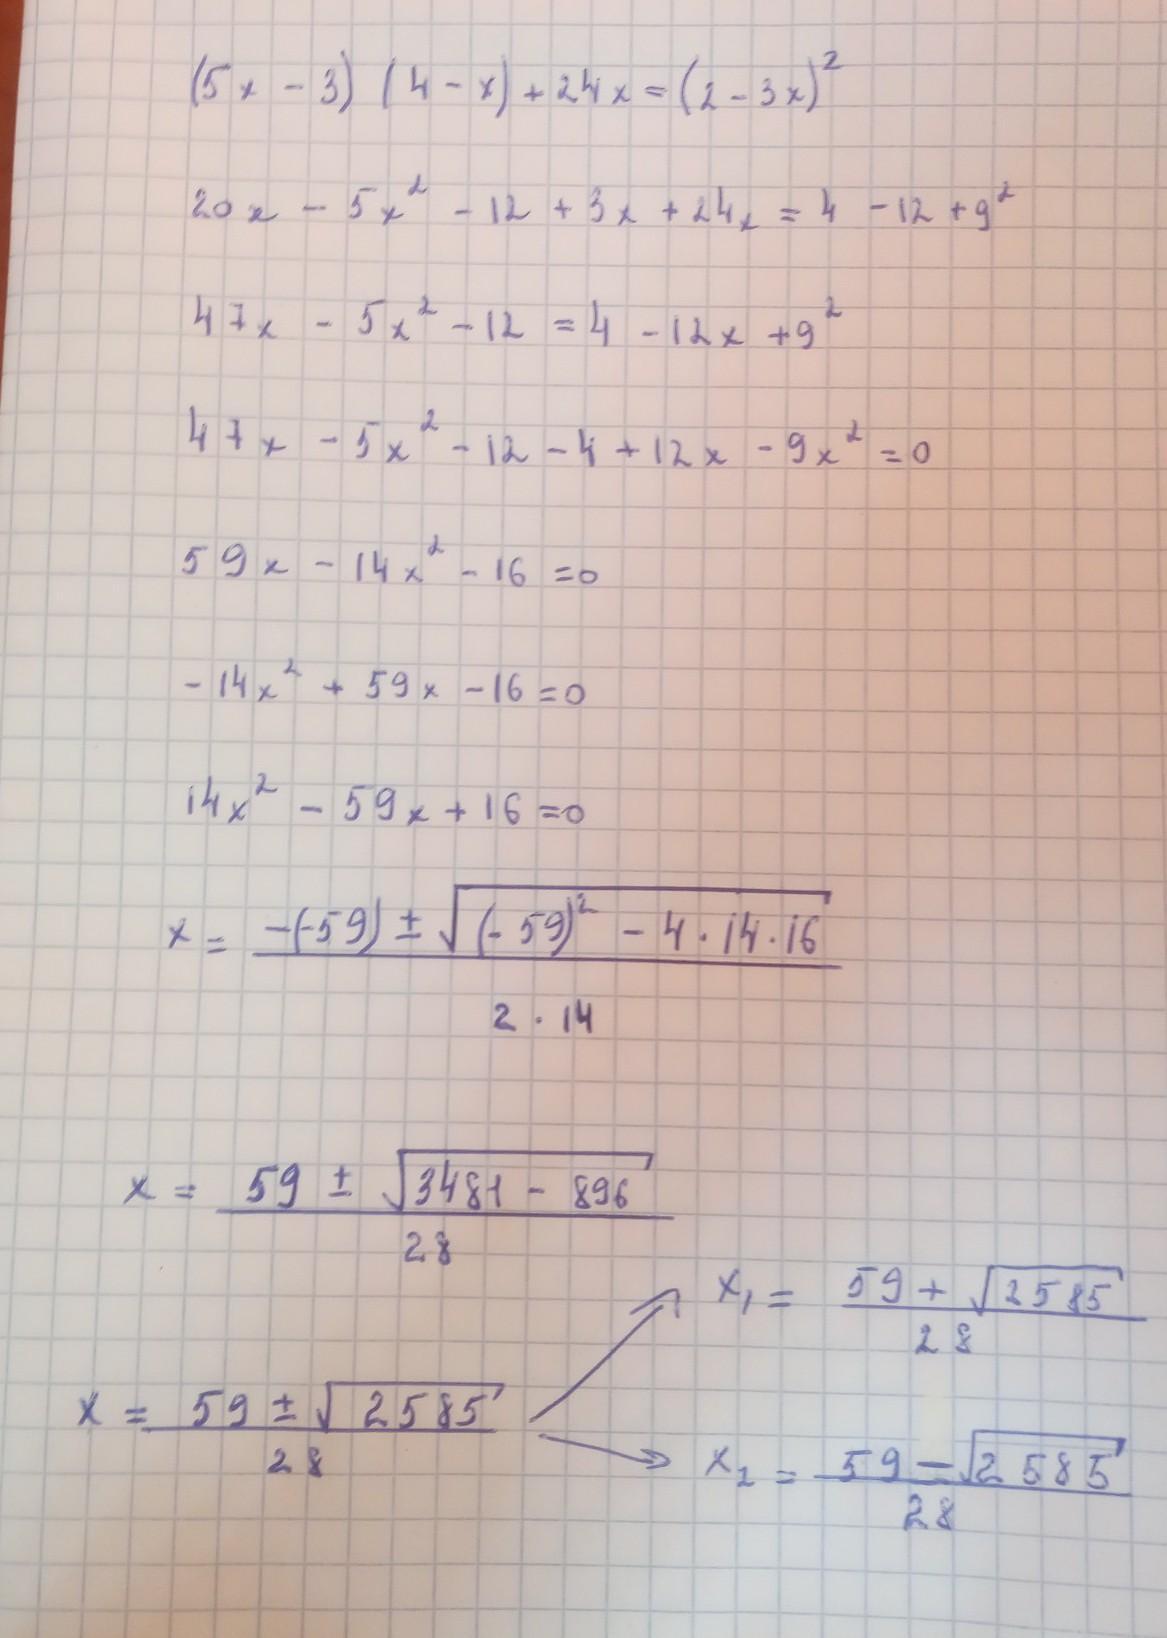 (5x - 3) (4 - x) + 24x = (2 - 3x)²
20x - 5x² - 12 + 3x + 24x = 4 - 12 + 9²
47x - 5x² - 12 = 4 - 12x + 9²
47x - 5x² - 12 - 4 + 12x - 9x² = 0
59x - 14x² - 16 = 0
-14x² + 59x - 16 = 0
14x² - 59x + 16 = 0
x = (-(-59) ± √((-59)² - 4 · 14 · 16)) / (2 · 14)
x = (59 ± √(3481 - 896)) / 28
x = (59 ± √2585) / 28
x₁ = (59 + √2585) / 28
x₂ = (59 - √2585) / 28